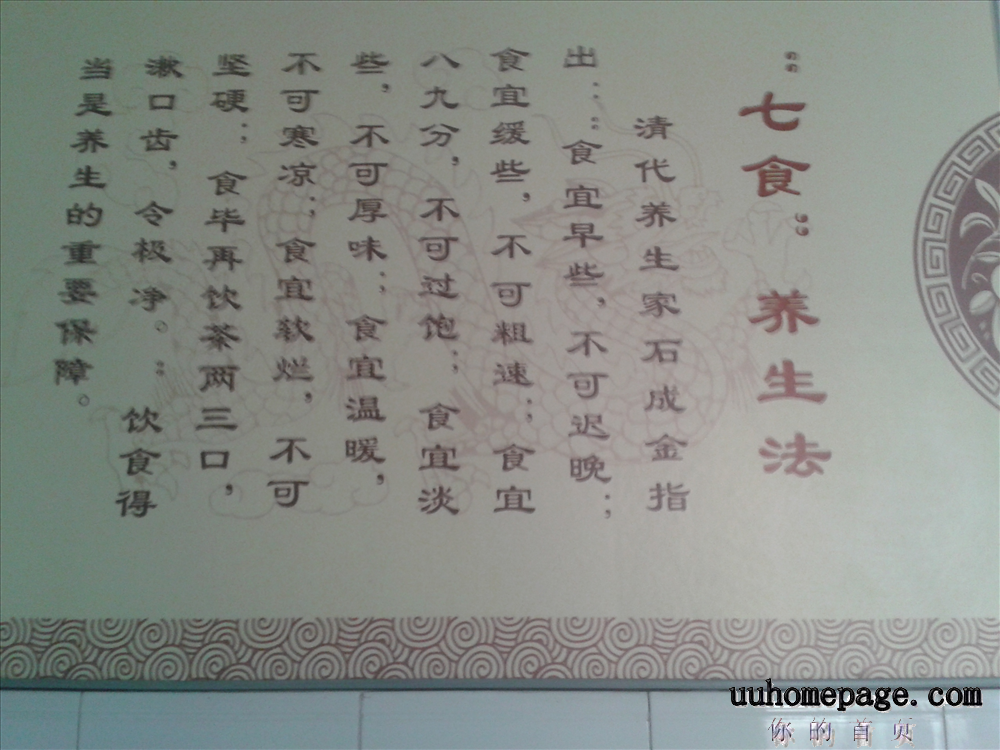 “七食”养生法
清代养生家石成金指
出：“食宜早些，不可迟晚；
食宜缓些，不可粗速；食宜
八九分，不可过饱；食宜淡
些，不可厚味；食宜温暖，
不可寒凉；食宜软烂，不可
坚硬；食毕再饮茶两三口，
漱口齿，令极净。”饮食得
当是养生的重要保障。
uuhomepage.com
你的首页